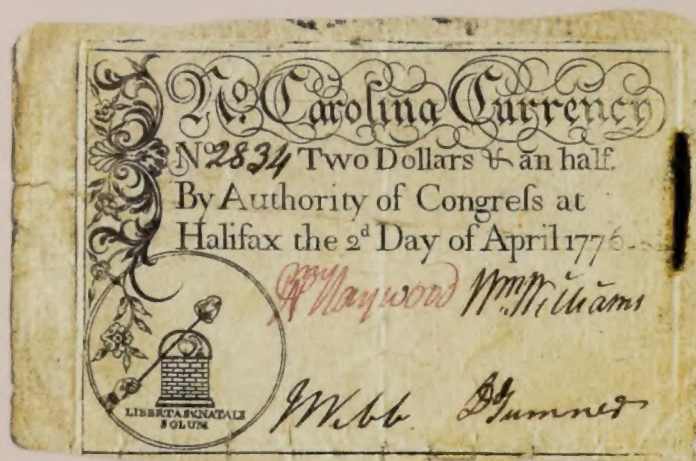 No. Carolina Currency
No 2834 Two Dollars & an half.
By Authority of Congreſs at
Halifax the 2d Day of April 1776.
Wm Haywood Wm Williams
LIBERTAS & NATALE
SOLUM
J Webb